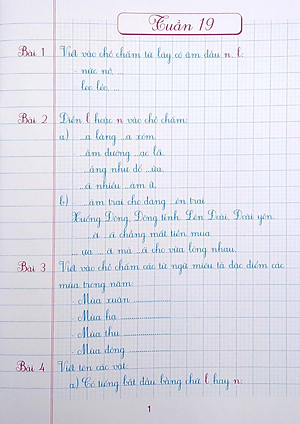 Tuần 19
Bài 1 Viết vào chỗ chấm từ láy có âm đầu n, l:
- nức nở, ...
- leo lẻo, ...
Bài 2 Điền l hoặc n vào chỗ chấm:
a) ...a làng ...a xóm.
...ầm đường ...ạc lối.
...ắng như đổ ...ửa.
...á nhiều ...am ...ũ.
b) ...àm trai cho đáng ...ên trai
Xuống Đông, Đông tĩnh. Lên Đoài, Đoài yên.
...à ...à chẳng mất tiền mua
...ựa ...à mà ...à cho vừa lòng nhau.
Bài 3 Viết vào chỗ chấm các từ ngữ miêu tả đặc điểm các
mùa trong năm:
- Mùa xuân
- Mùa hạ
- Mùa thu
- Mùa đông
Bài 4 Viết tên các vật:
a) Có tiếng bắt đầu bằng chữ l hay n:
1